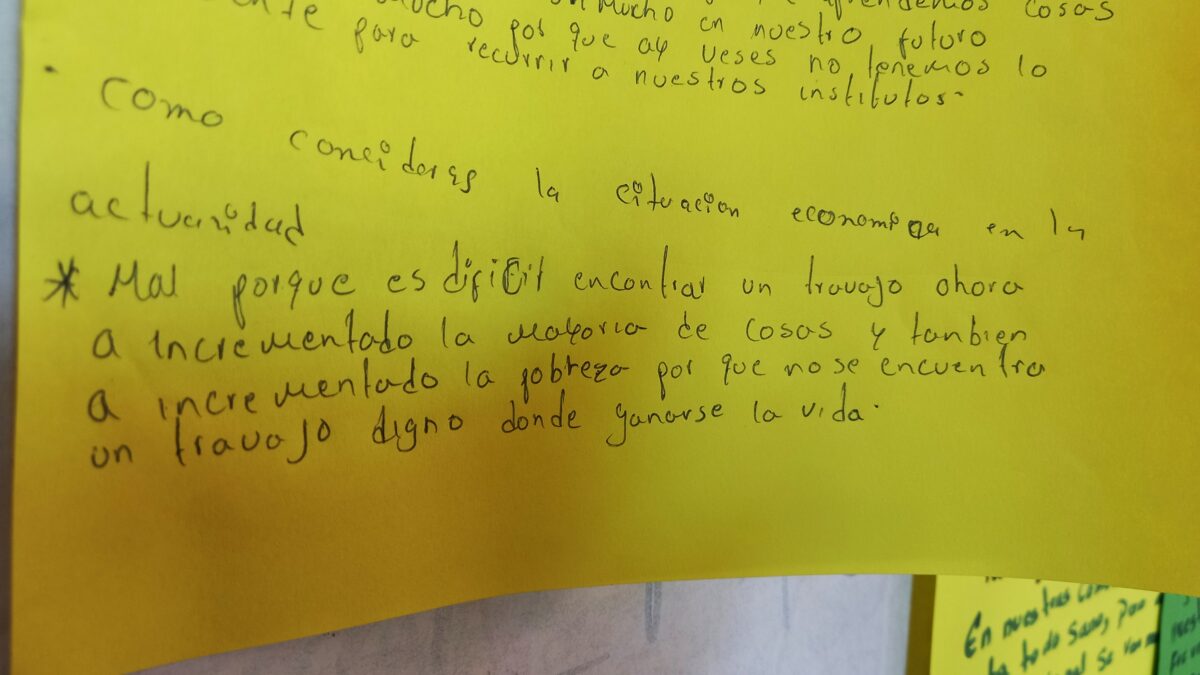 mucho en nuestro futuro
mucho por que ay veses no tenemos lo
para recurrir a nuestros institutos.
. Como concideres la cituacion economica en la
actuaridad
* Mal porque es dificil encontrar un travajo ahora
a incrementado la mayoria de cosas y tanbien
a incrementado la pobreza por que no se encuentra
un travajo digno donde ganarse la vida.
En nuestras
todo sano, por